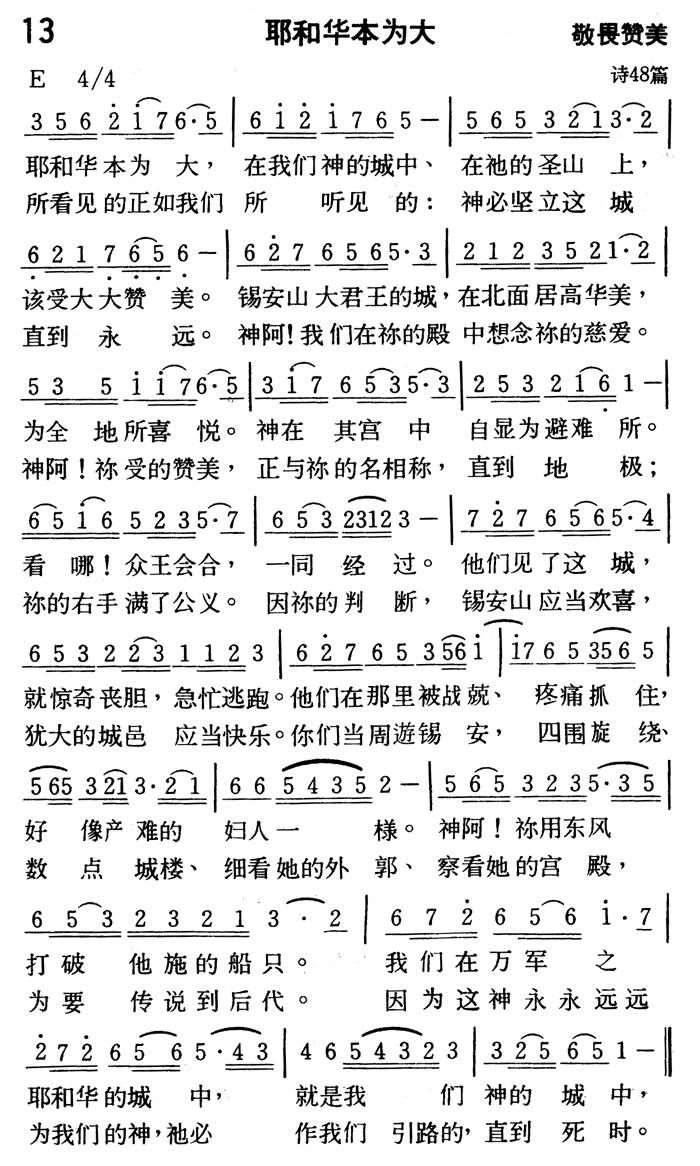 13 耶和华本为大 敬畏赞美
E 4/4 诗48篇
3 5 6 2 1 7 6·5 | 6 1 2 1 7 6 5 — | 5 6 5 3 2 1 3·2 |
耶和华本为 大，在我们神的城中、在祂的圣山 上，
所看见的正如我们 所 听见 的：神必坚立这 城
6 2 1 7 6 5 6 — | 6 2 7 6 5 6 5·3 | 2 1 2 3 5 2 1·2 |
该受大大赞 美。锡安山大君王的城，在北面居高华美，
直到永 远。神阿！我们在祢的殿中想念祢的慈爱。
5 3 5 1 1 7 6·5 | 3 1 7 6 5 3 5·3 | 2 5 3 2 1 6 1 — |
为全 地所喜 悦。神在 其宫 中 自显为避难 所。
神阿！祢受的赞美，正与祢的名相称，直到 地 极；
6 5 1 6 5 2 3 5·7 | 6 5 3 2312 3 — | 7 2 7 6 5 6 5·4 |
看 哪！众王会合，一同 经 过。他们见了这 城，
祢的右手满了公义。因祢的判 断，锡安山应当欢喜，
6 5 3 2 2 3 1 1 2 3 | 6 2 7 6 5 3 56 1 | 17 6 5 35 6 5 |
就惊奇丧胆，急忙逃跑。他们在那里被战兢、疼痛抓 住，
犹大的城邑 应当快乐。你们当周遊锡 安，四围旋 绕、
5 65 3 21 3·2 1 | 6 6 5 4 3 5 2 — | 5 6 5 3 2 3 5·3 5 |
好 像产 难的 妇人一 样。神阿！祢用东风
数 点 城楼、细看她的外 郭、察看她的宫 殿，
6 5 3 2 3 2 1 3·2 | 6 7 2 6 5 6 1·7 |
打破 他施的船只。 我们在万军 之
为要 传说到后代。 因为这神永永远远
2 7 2 6 5 6 5·4 3 | 4 6 5 4 3 2 3 | 3 2 5 6 5 1 — ‖
耶和华的城 中， 就是我 们 神的 城 中，
为我们的神，祂必 作我们 引路的，直到 死 时。